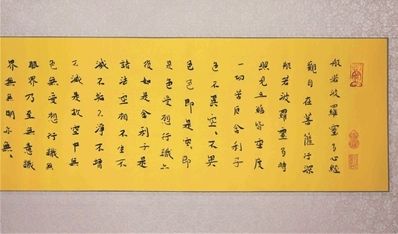 般若波羅蜜多心經
觀自在菩薩行深
般若波羅蜜多時
照見五蘊皆空度
一切苦厄舍利子
色不異空、不異
色色即是空、即
是色受想行識亦
復如是舍利子是
諸法空相不生不
滅不垢不淨不增
不減是故空中無
色無受想行識無
眼界乃至無意識
界無無明亦無、